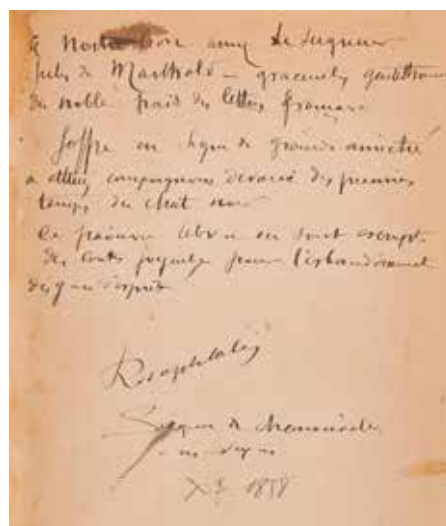 A Nostre bon amy Le Seigneur
Jules de Marthold – gracieulx gentilhomme
du noble païs des lettres françoises
J'offre en signe de grande amictié
a compaignon devoué des premiers
temps du chat noir
Ce présent où sont escripts
des contes joyeulx pour l'esbaudissement
des gens d'esprit
Rodolphe Salis
Seigneur de
1888